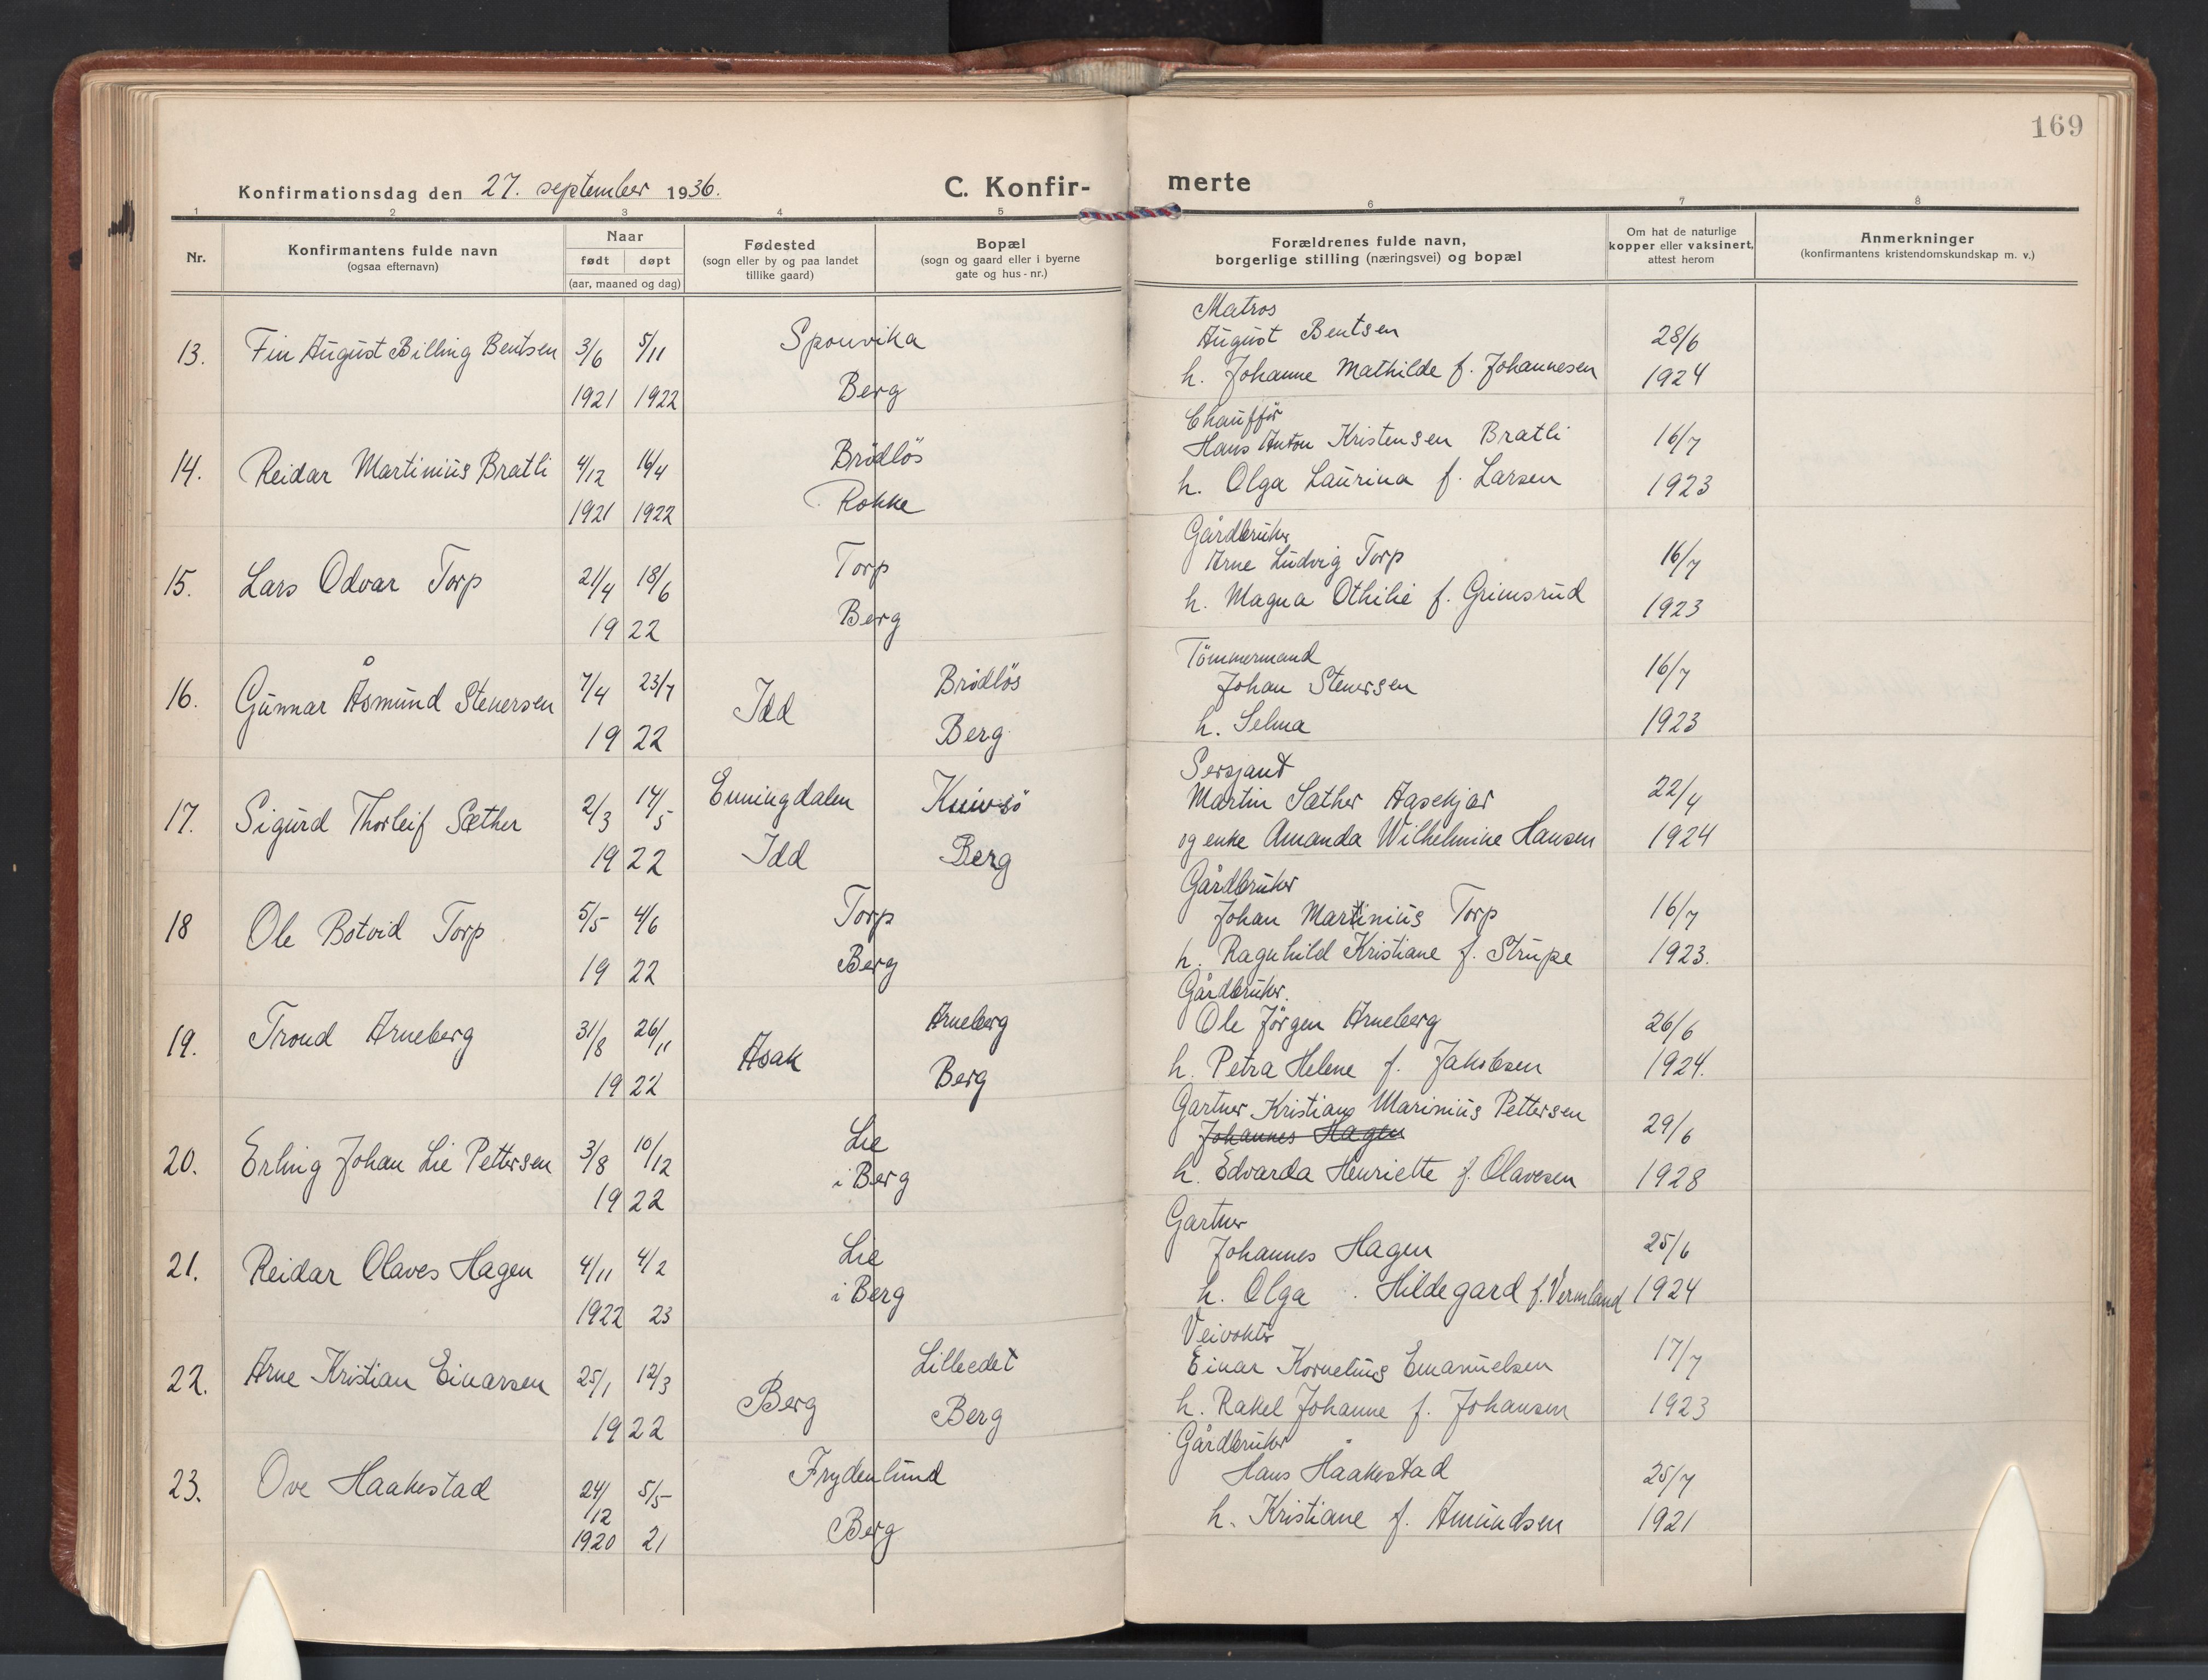 169
Konfirmationsdag den 27. september 1936.
C. Konfir-
merte
1 2 3 4 5 6 7 8
Nr.
Konfirmantens fulde navn
(ogsaa efternavn)
Naar
født døpt
(aar, maaned og dag)
Fødested
(sogn eller by og paa landet
tillike gaard)
Bopæl
(sogn og gaard eller i byerne
gate og hus-nr.)
Forældrenes fulde navn,
borgerlige stilling (næringsvei) og bopæl
Om hat de naturlige
kopper eller vaksinert,
attest herom
Anmerkninger
(konfirmantens kristendomskundskap m. v.)
Matros
13. Fin August Billing Bentsen 3/6 5/11 Sponvika August Bentsen 28/6
1921 1922 Berg h. Johanne Mathilde f. Johannesen 1924
Chauffør
14. Reidar Martinius Bratli 4/12 16/4 Brödlös Hans Anton Kristensen Bratli 16/7
1921 1922 Rokke h. Olga Laurina f. Larsen 1923
Gårdbruker
15. Lars Odvar Torp 21/4 18/6 Torp Arne Ludvig Torp 16/7
1922 Berg h. Magna Othilie f. Grimsrud 1923
Tömmermand
16. Gunnar Åsmund Stenersen 7/4 23/7 Idd Brödlös Johan Stenersen 16/7
1922 Berg h. Selma 1923
Sersjant
17. Sigurd Thorleif Sæther 2/3 14/5 Enningdalen Knivsö Martin Sæther Aasekjær 22/4
1922 Idd Berg og enke Amanda Wilhelmine Hansen 1924
Gårdbruker
18 Ole Botvid Torp 5/5 4/6 Torp Johan Martinius Torp 16/7
1922 Berg h. Ragnhild Kristiane f. Strupe 1923.
Gårdbruker.
19. Trond Arneberg 31/8 26/11 Asak Arneberg Ole Jörgen Arneberg 26/6
1922 Berg h. Petra Helene f. Jakobsen 1924.
Gartner Kristians Marinius Pettersen
20. Erling Johan Lie Pettersen 3/8 10/12 Lie Johannes Hagen 29/6
1922 i Berg h. Edvarda Henriette f. Olavesen 1928
Gartner
21. Reidar Olaves Hagen 4/11 4/2 Lie Johannes Hagen 25/6
1922 23 i Berg h. Olga Hildegard f. Vermland 1924
Veivokter
22. Arne Kristian Einarsen 25/1 12/3 Berg Lilleedet Einar Kornelius Emanuelsen 17/7
1922 Berg h. Rakel Johanne f. Johansen 1923
Gårdbruker
23. Ove Haakestad 24/12 5/5 Frydenlund Hans Haakestad 25/7
1920 21 Berg h. Kristiane f. Amundsen 1921